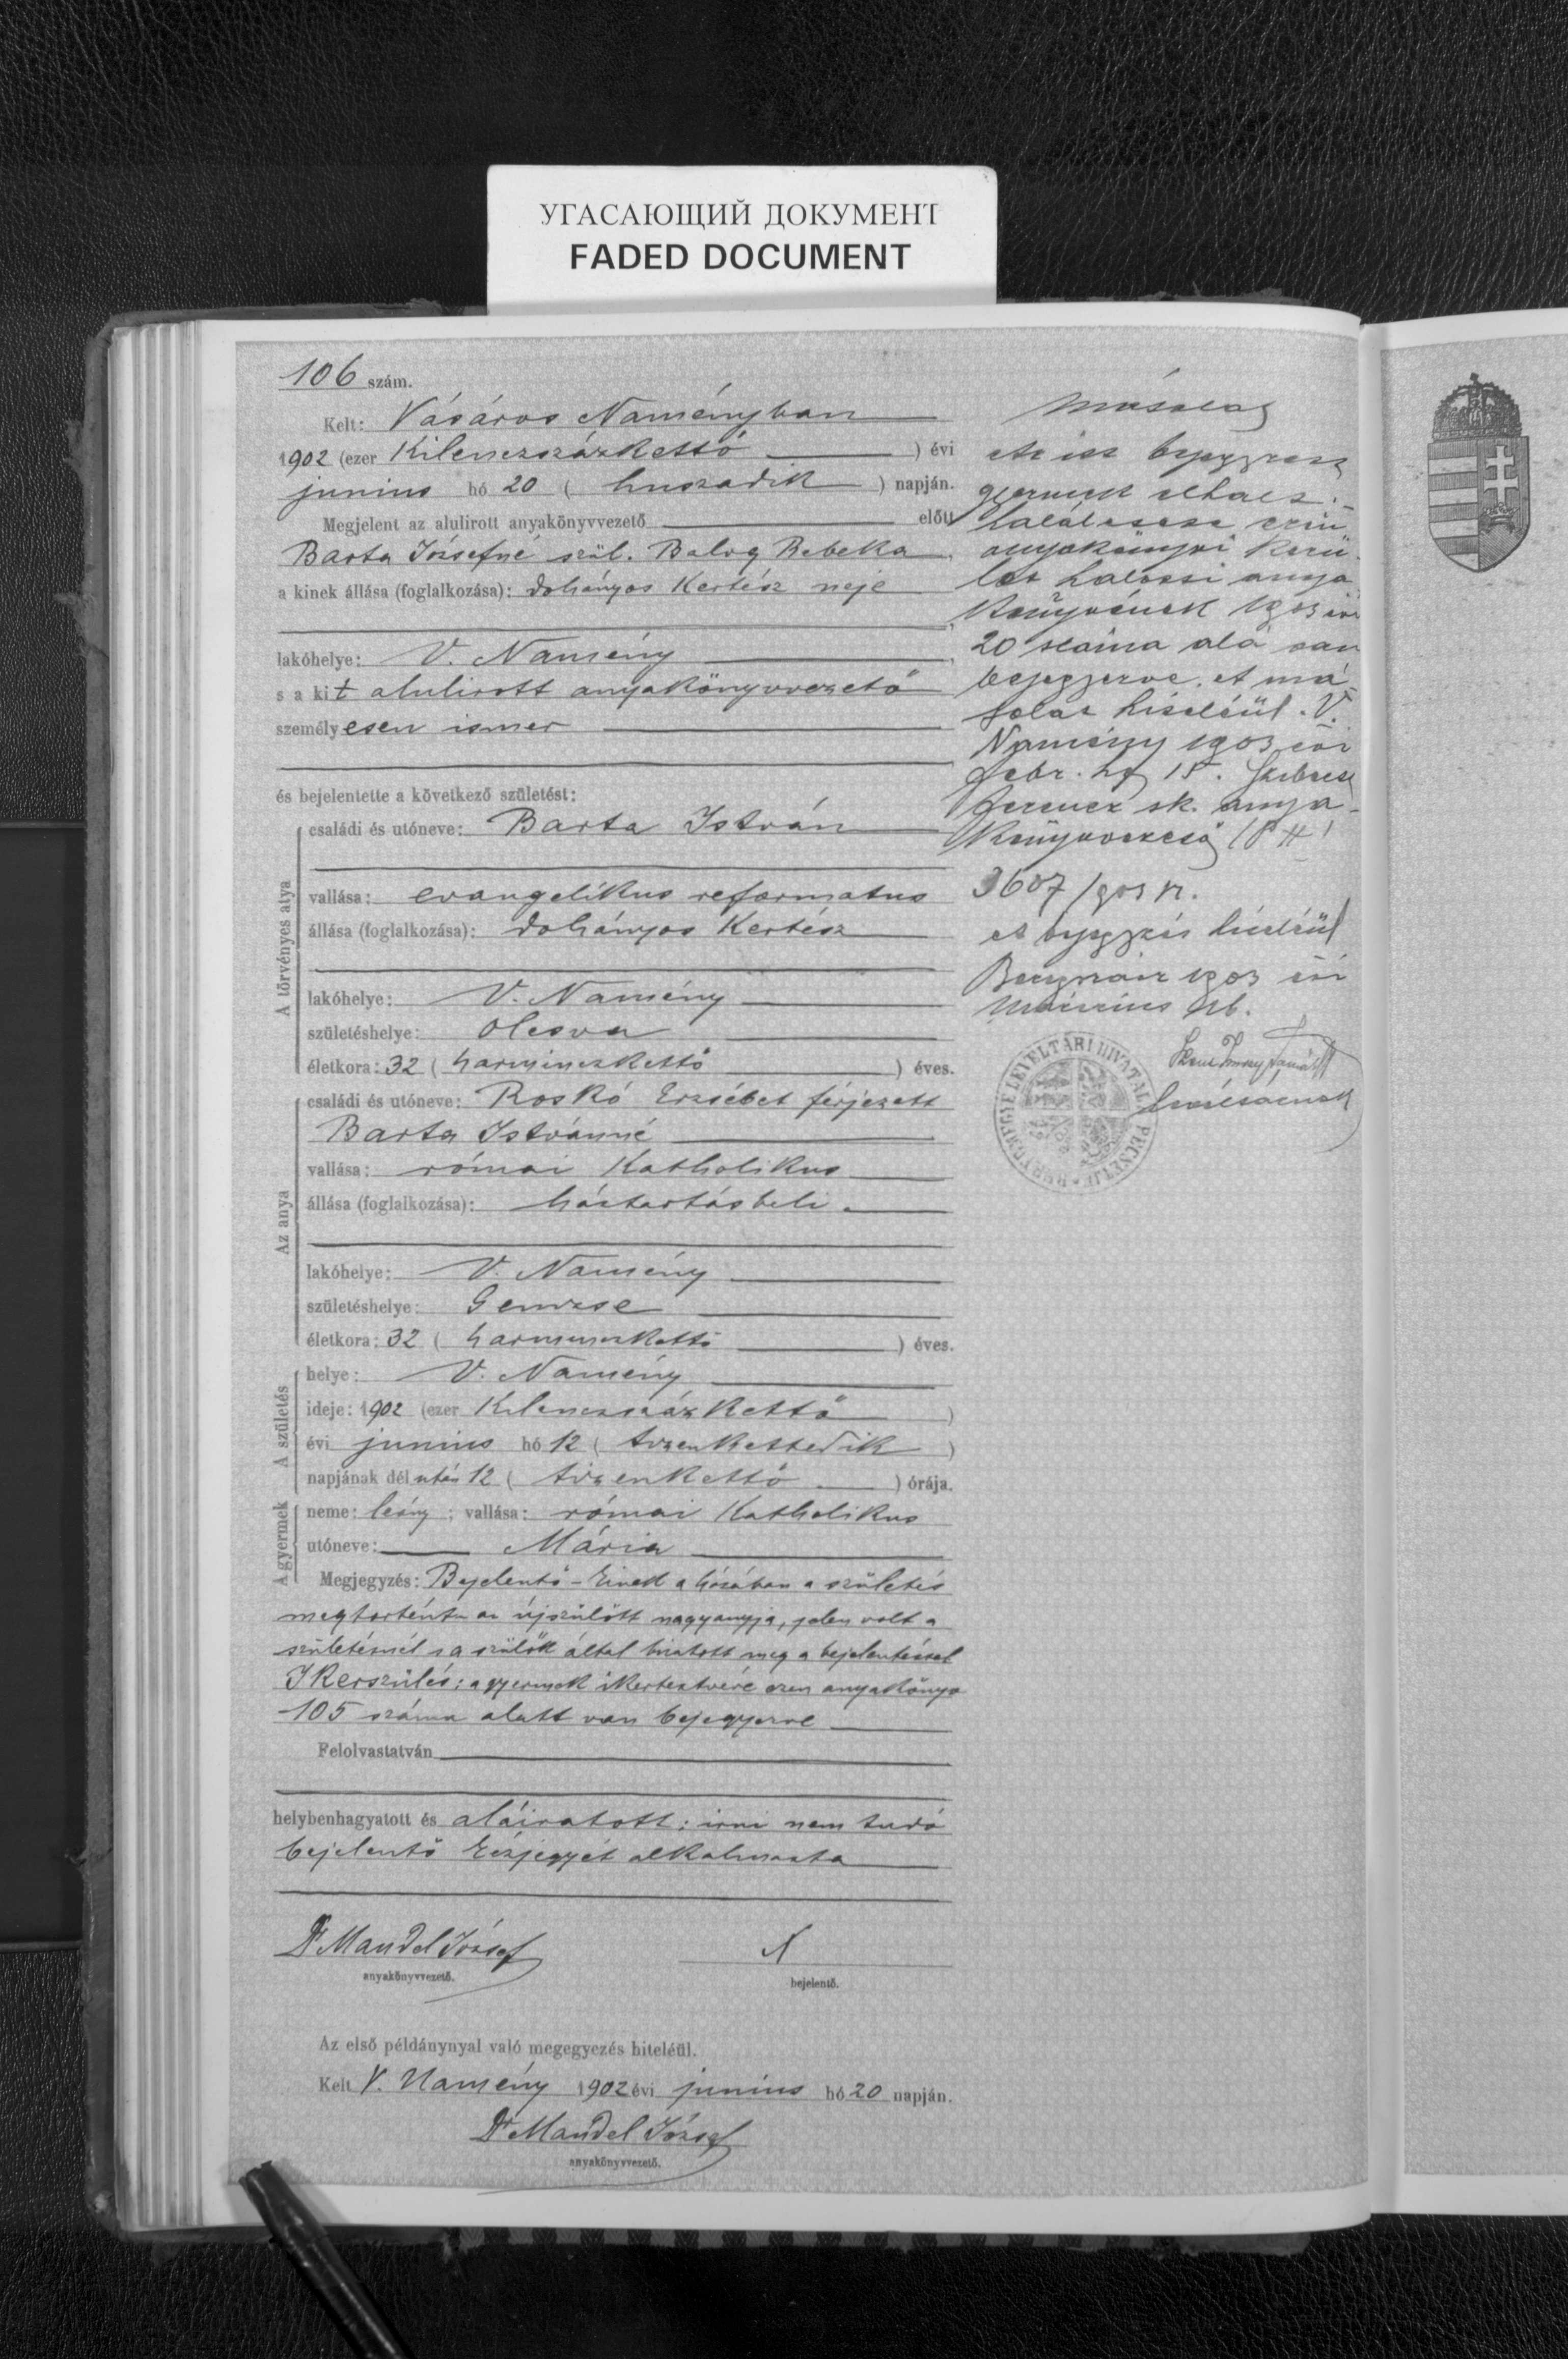 УГАСАЮЩИЙ ДОКУМЕНТ
FADED DOCUMENT
106 szám.
Kelt: Vásáros Naményban
1902 (ezer Kilenczszázkettő ) évi
junius hó 20 ( huszadik ) napján.
Megjelent az alulirott anyakönyvvezető előtt
Barta Józsefné szül. Balog Rebeka
a kinek állása (foglalkozása): dohányos Kertész neje
lakóhelye: V. Namény
s a kit alulirott anyakönyvvezető
személyesen ismer
és bejelentette a következő születést:
A törvényes atya
családi és utóneve: Barta István
vallása: evangelikus reformatus
állása (foglalkozása): dohányos Kertész
lakóhelye: V. Namény
születéshelye: Olcsva
életkora: 32 ( harminczkettő ) éves.
Az anya
családi és utóneve: Roskó Erzsébet férjezett
Barta Istvánné
vallása: római Katholikus
állása (foglalkozása): háztartásbeli
lakóhelye: V. Namény
születéshelye: Gemzse
életkora: 32 ( harminczkettő ) éves.
A születés
helye: V. Namény
ideje: 1902 (ezer Kilenczszázkettő )
évi junius hó 12 ( tizenkettedik )
napjának dél után 12 ( tizenkettő ) órája.
A gyermek
neme: leány ; vallása: római Katholikus
utóneve: Mária
Megjegyzés: Bejelentő - kinek a házában a születés
megtörtént az újszülött nagyanyja, jelen volt a
születésnél s a szülők által bizatott meg a bejelentéssel
Ikerszülés; a gyermek ikertestvére ezen anyakönyv
105 száma alatt van bejegyezve
Felolvastatván
helybenhagyatott és aláiratott; irni nem tudó
bejelentő kézjegyét alkalmazta
Dr Mandel József
anyakönyvvezető.
X
bejelentő.
Az első példánynyal való megegyezés hiteléül.
Kelt V. Namény 1902 évi junius hó 20 napján.
Dr Mandel József
anyakönyvvezető.
Másolat
Az itt bejegyzett
gyermek elhalt.
halálesete
anyakönyvi kerü-
let halotti anya
könyvének 1903 évi
20 száma alá van
bejegyezve. A má
solat hiteléül. V.
Namény 1903 évi
febr. hó 15.
Ferencz sk. anya-
könyvvezető (P H)
3607/903 n.
A bejegyzés hiteléül
Beregszász 1903 évi
márczius
LEVÉLTÁRI HIVATAL PECSÉTJE